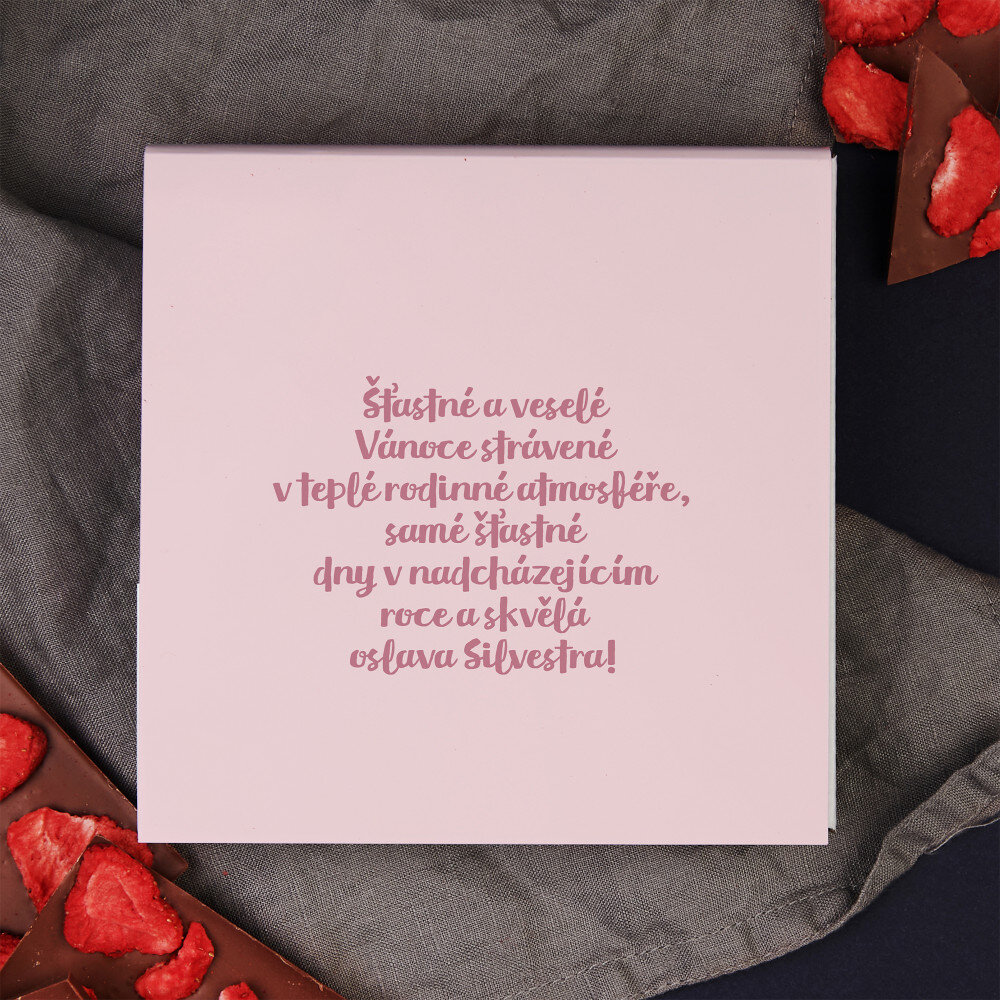 Šťastné a veselé
Vánoce strávené
v teplé rodinné atmosféře,
samé šťastné
dny v nadcházejícím
roce a skvělá
oslava Silvestra!